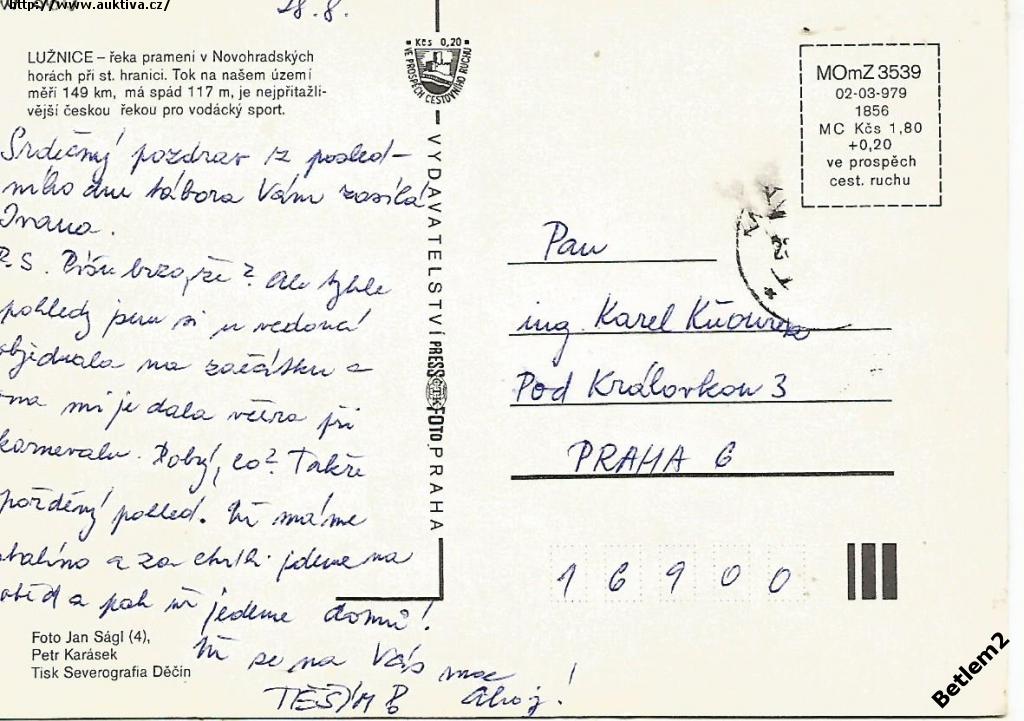 http://www.auktiva.cz/
28.8.
LUŽNICE – řeka pramení v Novohradských
horách při st. hranici. Tok na našem území
měří 149 km, má spád 117 m, je nejpřitažli-
vější českou řekou pro vodácký sport.
Srdečný pozdrav iz posled-
ního dne tábora Vám zasílá
Ivana.
P.S. Píšu brzo, že? Ale tyhle
pohledy jsem si u vedoucí
objednala na začátku a
ona mi je dala včera při
karnevalu. Dobrý, co? Takže
pořděný pohled. Už máme
sbalíno a za chvíli jdeme na
oběd a pak už jedeme domů!
Už se na Vás moc
TĚŠÍM Ahoj!
Foto Jan Ságl (4),
Petr Karásek
Tisk Severografia Děčín
Kčs 0,20
VE PROSPĚCH CESTOVNÍHO RUCHU
VYDAVATELSTVÍ PRESSFOTO, PRAHA
MOmZ 3539
02-03-979
1856
MC Kčs 1,80
+0,20
ve prospěch
cest. ruchu
Pan
ing. Karel
Pod Královkou 3
PRAHA 6
16900
Betlem2